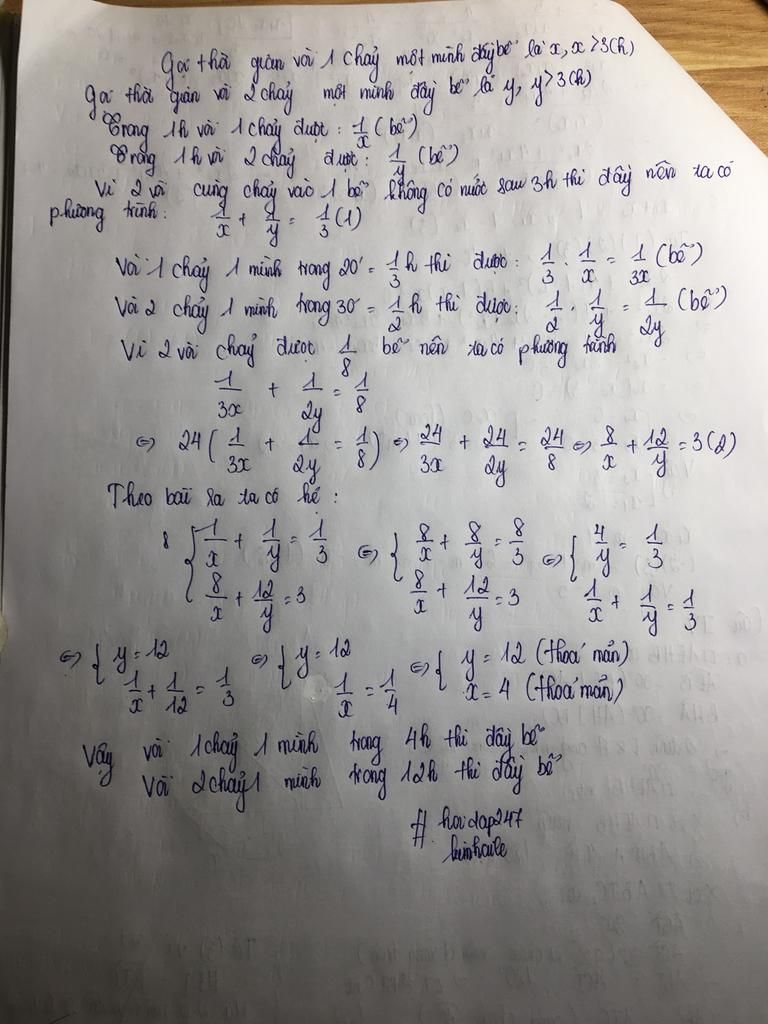 Gọi thời gian vòi 1 chảy một mình đầy bể là x, x > 3 (h)
Gọi thời gian vòi 2 chảy một mình đầy bể là y, y > 3 (h)
Trong 1h vòi 1 chảy được : 1/x (bể)
Trong 1h vòi 2 chảy được : 1/y (bể)
Vì 2 vòi cùng chảy vào 1 bể không có nước sau 3h thì đầy nên ta có
phương trình: 1/x + 1/y = 1/3 (1)
Vòi 1 chảy 1 mình trong 20' = 1/3 h thì được : 1/3 . 1/x = 1/3x (bể)
Vòi 2 chảy 1 mình trong 30' = 1/2 h thì được : 1/2 . 1/y = 1/2y (bể)
Vì 2 vòi chảy được 1/8 bể nên ta có phương trình
1/3x + 1/2y = 1/8
⇔ 24 ( 1/3x + 1/2y = 1/8 ) ⇔ 24/3x + 24/2y = 24/8 ⇔ 8/x + 12/y = 3 (2)
Theo bài ra ta có hệ :
8 { 1/x + 1/y = 1/3 ⇔ { 8/x + 8/y = 8/3 ⇔ { 4/y = 1/3
8/x + 12/y = 3 8/x + 12/y = 3 1/x + 1/y = 1/3
⇔ { y = 12 ⇔ { y = 12 ⇔ { y = 12 (thoả mãn)
1/x + 1/12 = 1/3 1/x = 1/4 x = 4 (thoả mãn)
Vậy vòi 1 chảy 1 mình trong 4h thì đầy bể
Vòi 2 chảy 1 mình trong 12h thì đầy bể
# hoidap247